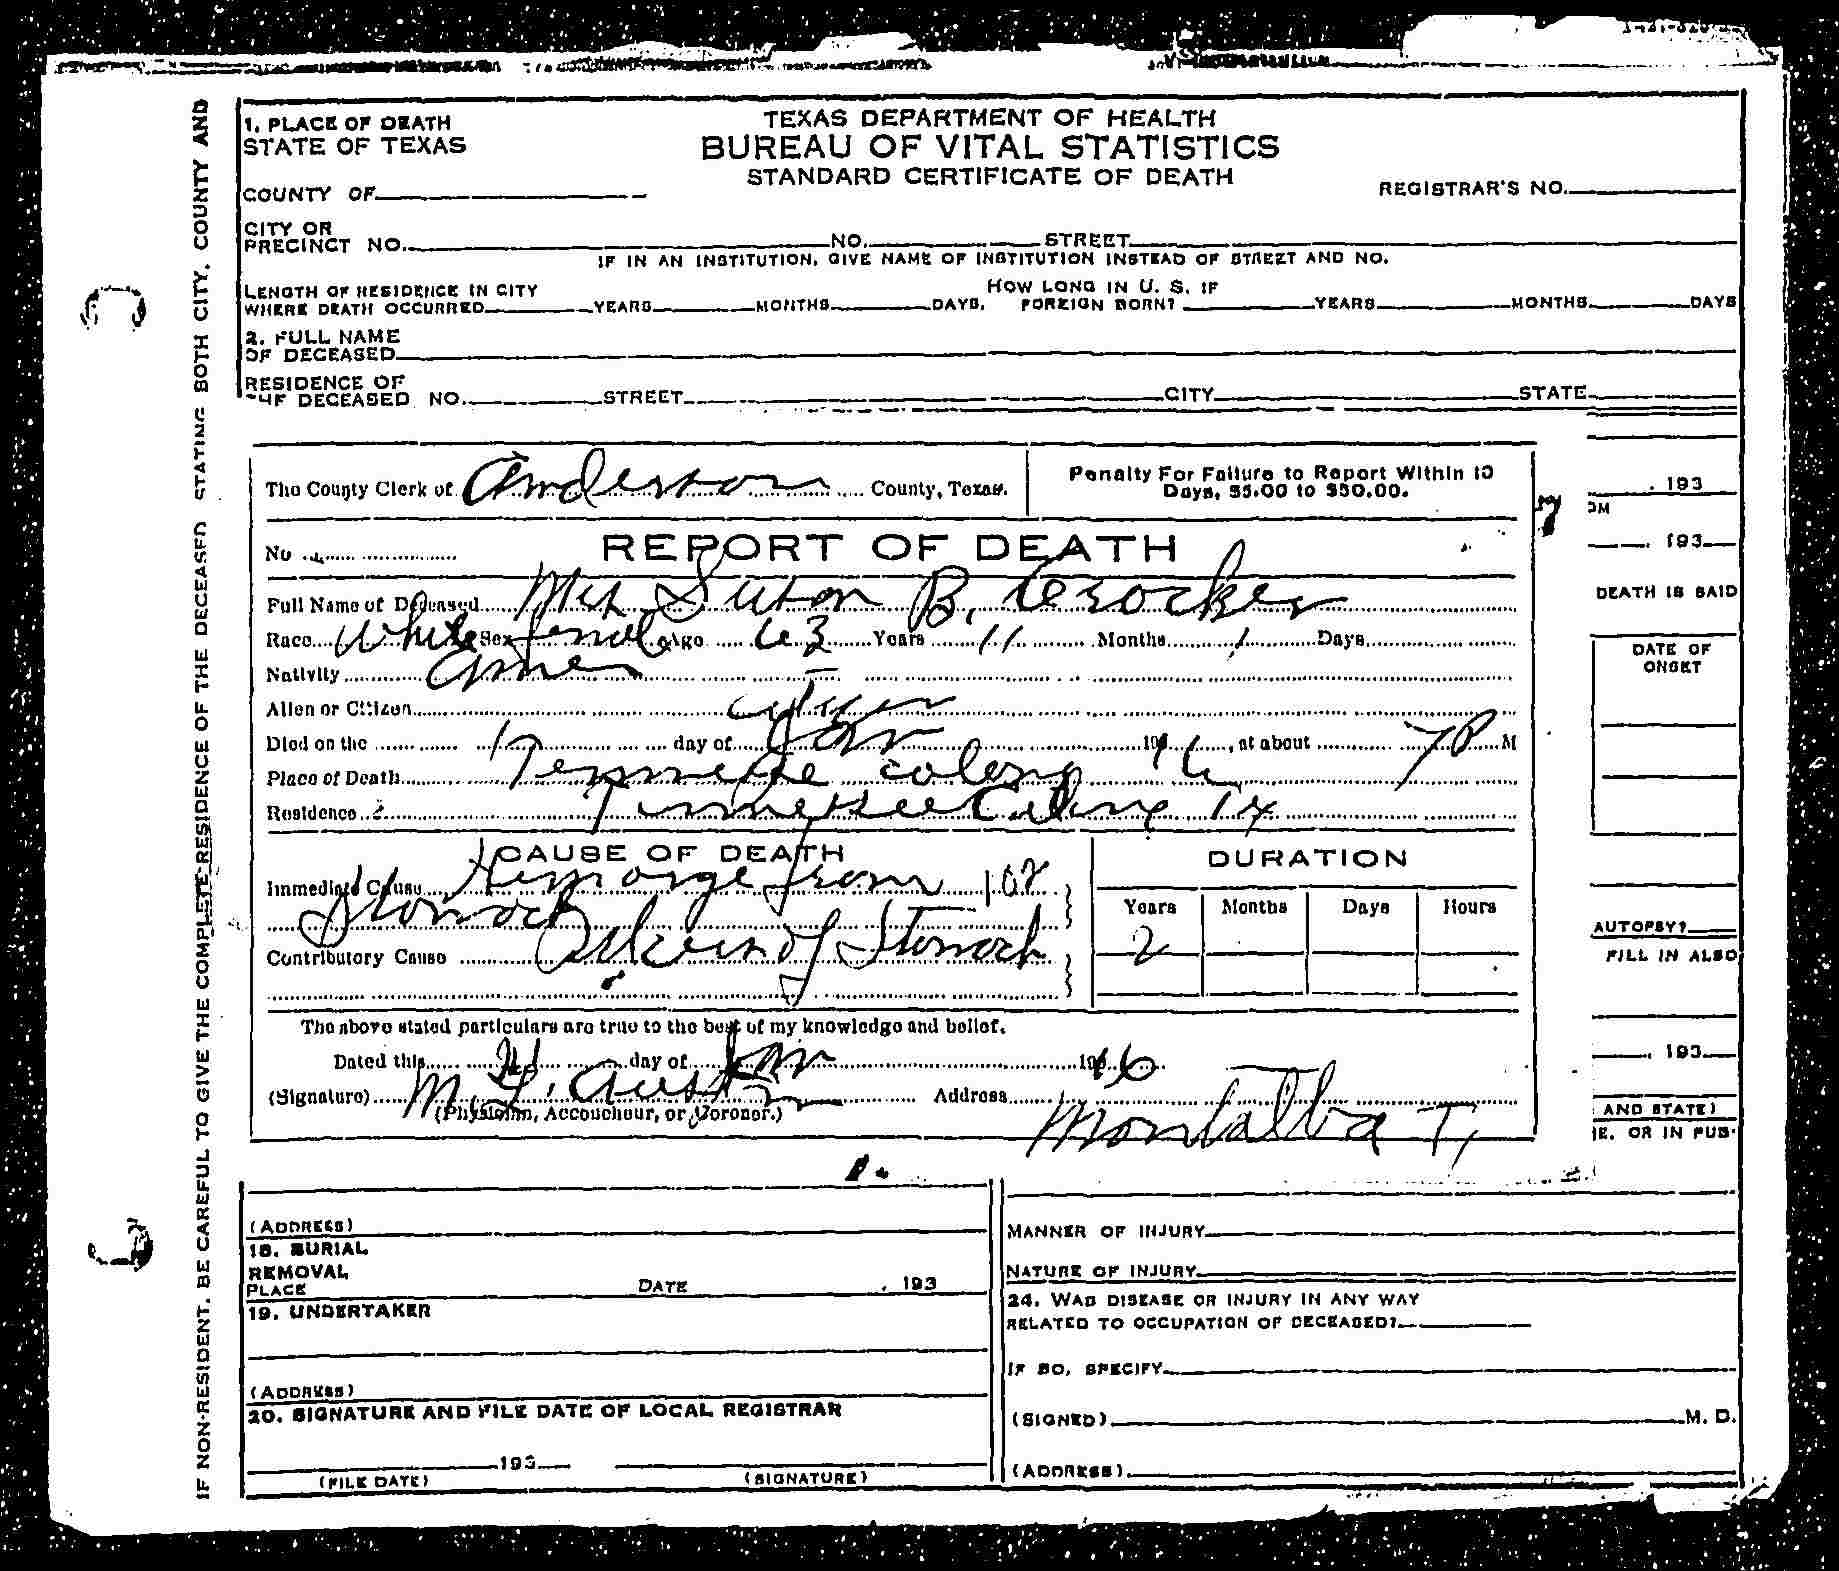 1. PLACE OF DEATH
STATE OF TEXAS
TEXAS DEPARTMENT OF HEALTH
BUREAU OF VITAL STATISTICS
STANDARD CERTIFICATE OF DEATH
COUNTY OF
REGISTRAR'S NO.
CITY OR
PRECINCT NO. NO. STREET
IF IN AN INSTITUTION, GIVE NAME OF INSTITUTION INSTEAD OF STREET AND NO.
LENGTH OF RESIDENCE IN CITY HOW LONG IN U. S. IF
WHERE DEATH OCCURRED YEARS MONTHS DAYS. FOREIGN BORN? YEARS MONTHS DAYS
2. FULL NAME
OF DECEASED
RESIDENCE OF
THE DECEASED NO. STREET CITY STATE
The County Clerk of Anderson County, Texas.
Penalty For Failure to Report Within 10
Days, $5.00 to $50.00.
No
REPORT OF DEATH
Full Name of Deceased B. Crocker
Race White Sex Age 63 Years 11 Months 1 Days
Nativity Amer
Alien or Citizen
Died on the 17 day of Jan 191 6, at about 7 P M
Place of Death colony
Residence Tennessee Colony Tx
CAUSE OF DEATH
DURATION
Immediate Cause Hemorage from
Stomach
Years Months Days Hours
Contributory Cause of Stomach
2
The above stated particulars are true to the best of my knowledge and belief.
Dated this day of Jan 191 6
(Signature) M. Austin Address Montalba T,
(Physician, Accoucheur, or Coroner.)
193
193
DEATH IS SAID
DATE OF
ONSET
AUTOPSY?
FILL IN ALSO
193
AND STATE)
IE, OR IN PUB-
(ADDRESS)
18. BURIAL
REMOVAL
PLACE DATE , 193
19. UNDERTAKER
(ADDRESS)
20. SIGNATURE AND FILE DATE OF LOCAL REGISTRAR
193
(FILE DATE) (SIGNATURE)
MANNER OF INJURY
NATURE OF INJURY
24. WAS DISEASE OR INJURY IN ANY WAY
RELATED TO OCCUPATION OF DECEASED?
IF SO, SPECIFY
(SIGNED) M. D.
(ADDRESS)
IF NON-RESIDENT, BE CAREFUL TO GIVE THE COMPLETE RESIDENCE OF THE DECEASED STATING BOTH CITY, COUNTY AND